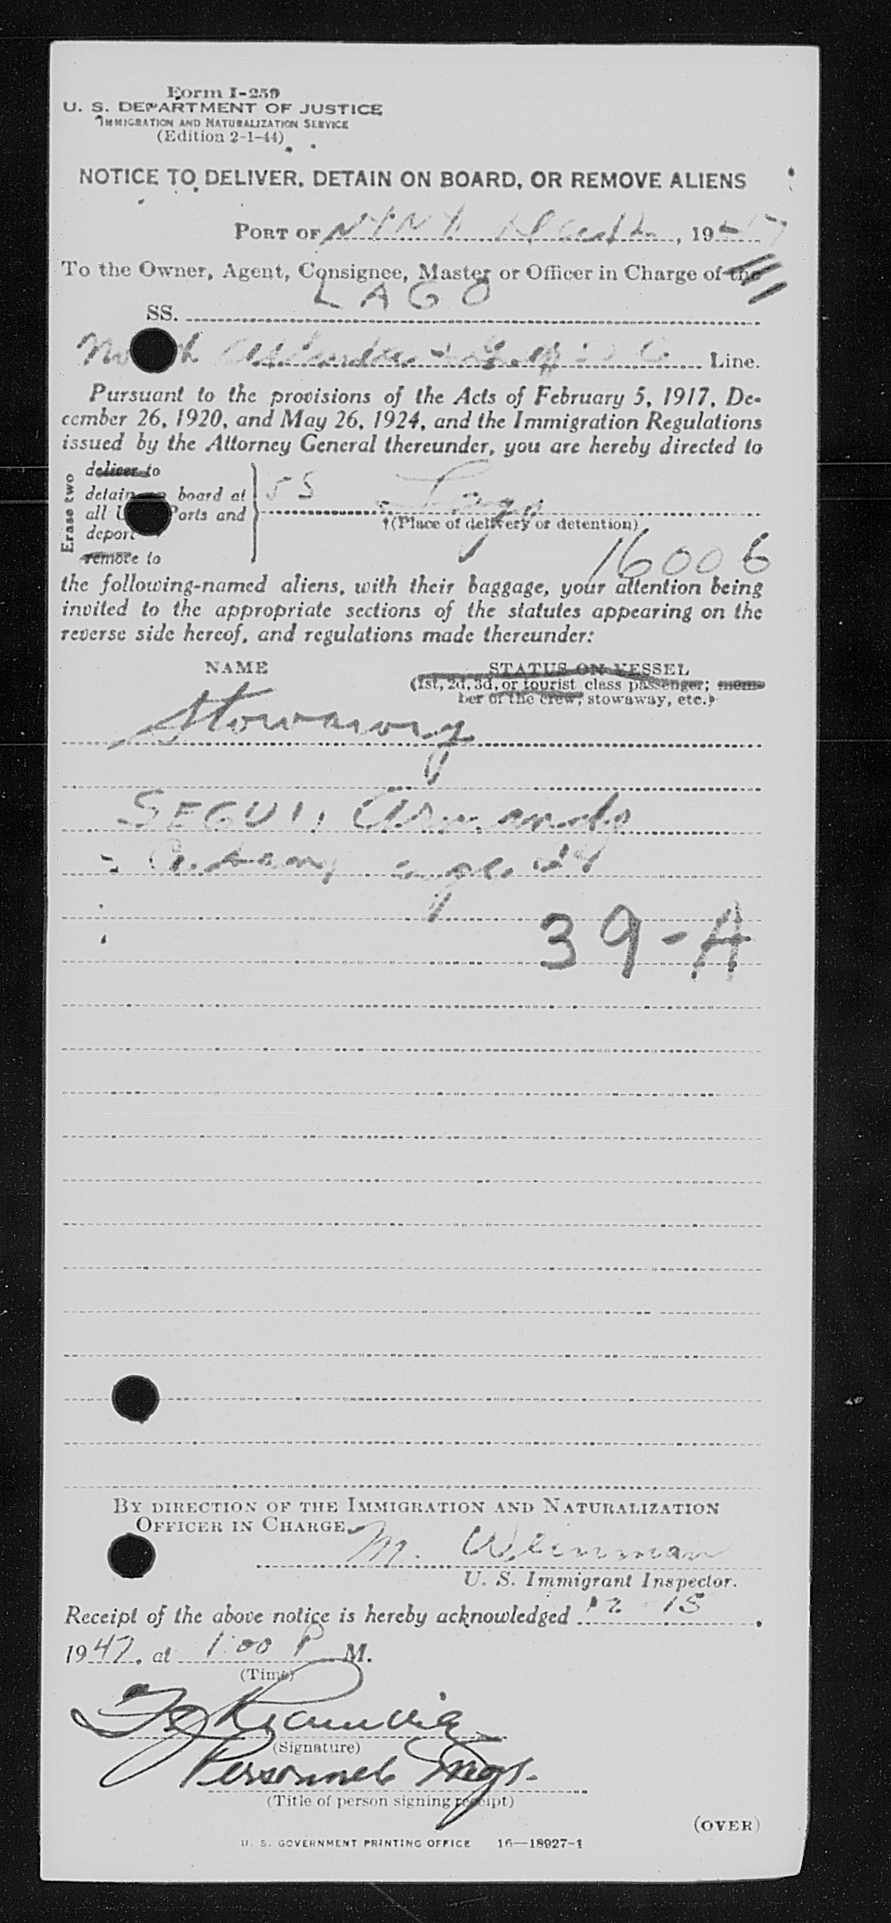 Form I-259
U. S. DEPARTMENT OF JUSTICE
IMMIGRATION AND NATURALIZATION SERVICE
(Edition 2-1-44)
NOTICE TO DELIVER, DETAIN ON BOARD, OR REMOVE ALIENS
PORT OF N Y N Y , 1947
To the Owner, Agent, Consignee, Master or Officer in Charge of the
SS. LAGO
North Atlantic & Gulf Line.
Pursuant to the provisions of the Acts of February 5, 1917, De-
cember 26, 1920, and May 26, 1924, and the Immigration Regulations
issued by the Attorney General thereunder, you are hereby directed to
Erase two
deliver to
detain on board at
all Ports and
deport
remove to
SS Lago
†(Place of delivery or detention)
16006
the following-named aliens, with their baggage, your attention being
invited to the appropriate sections of the statutes appearing on the
reverse side hereof, and regulations made thereunder:
NAME STATUS ON VESSEL
(1st, 2d, 3d, or tourist class passenger; mem-
ber of the crew, stowaway, etc.)
Stowaway
SEGUI, Armando
age 24
39-A
BY DIRECTION OF THE IMMIGRATION AND NATURALIZATION
OFFICER IN CHARGE
M. Weinman
U. S. Immigrant Inspector.
Receipt of the above notice is hereby acknowledged 12 15 ,
1947, at 1:00 P M.
(Time)
(Signature)
Personnel Mgr.
(Title of person signing receipt)
(OVER)
U. S. GOVERNMENT PRINTING OFFICE 16—18927-1